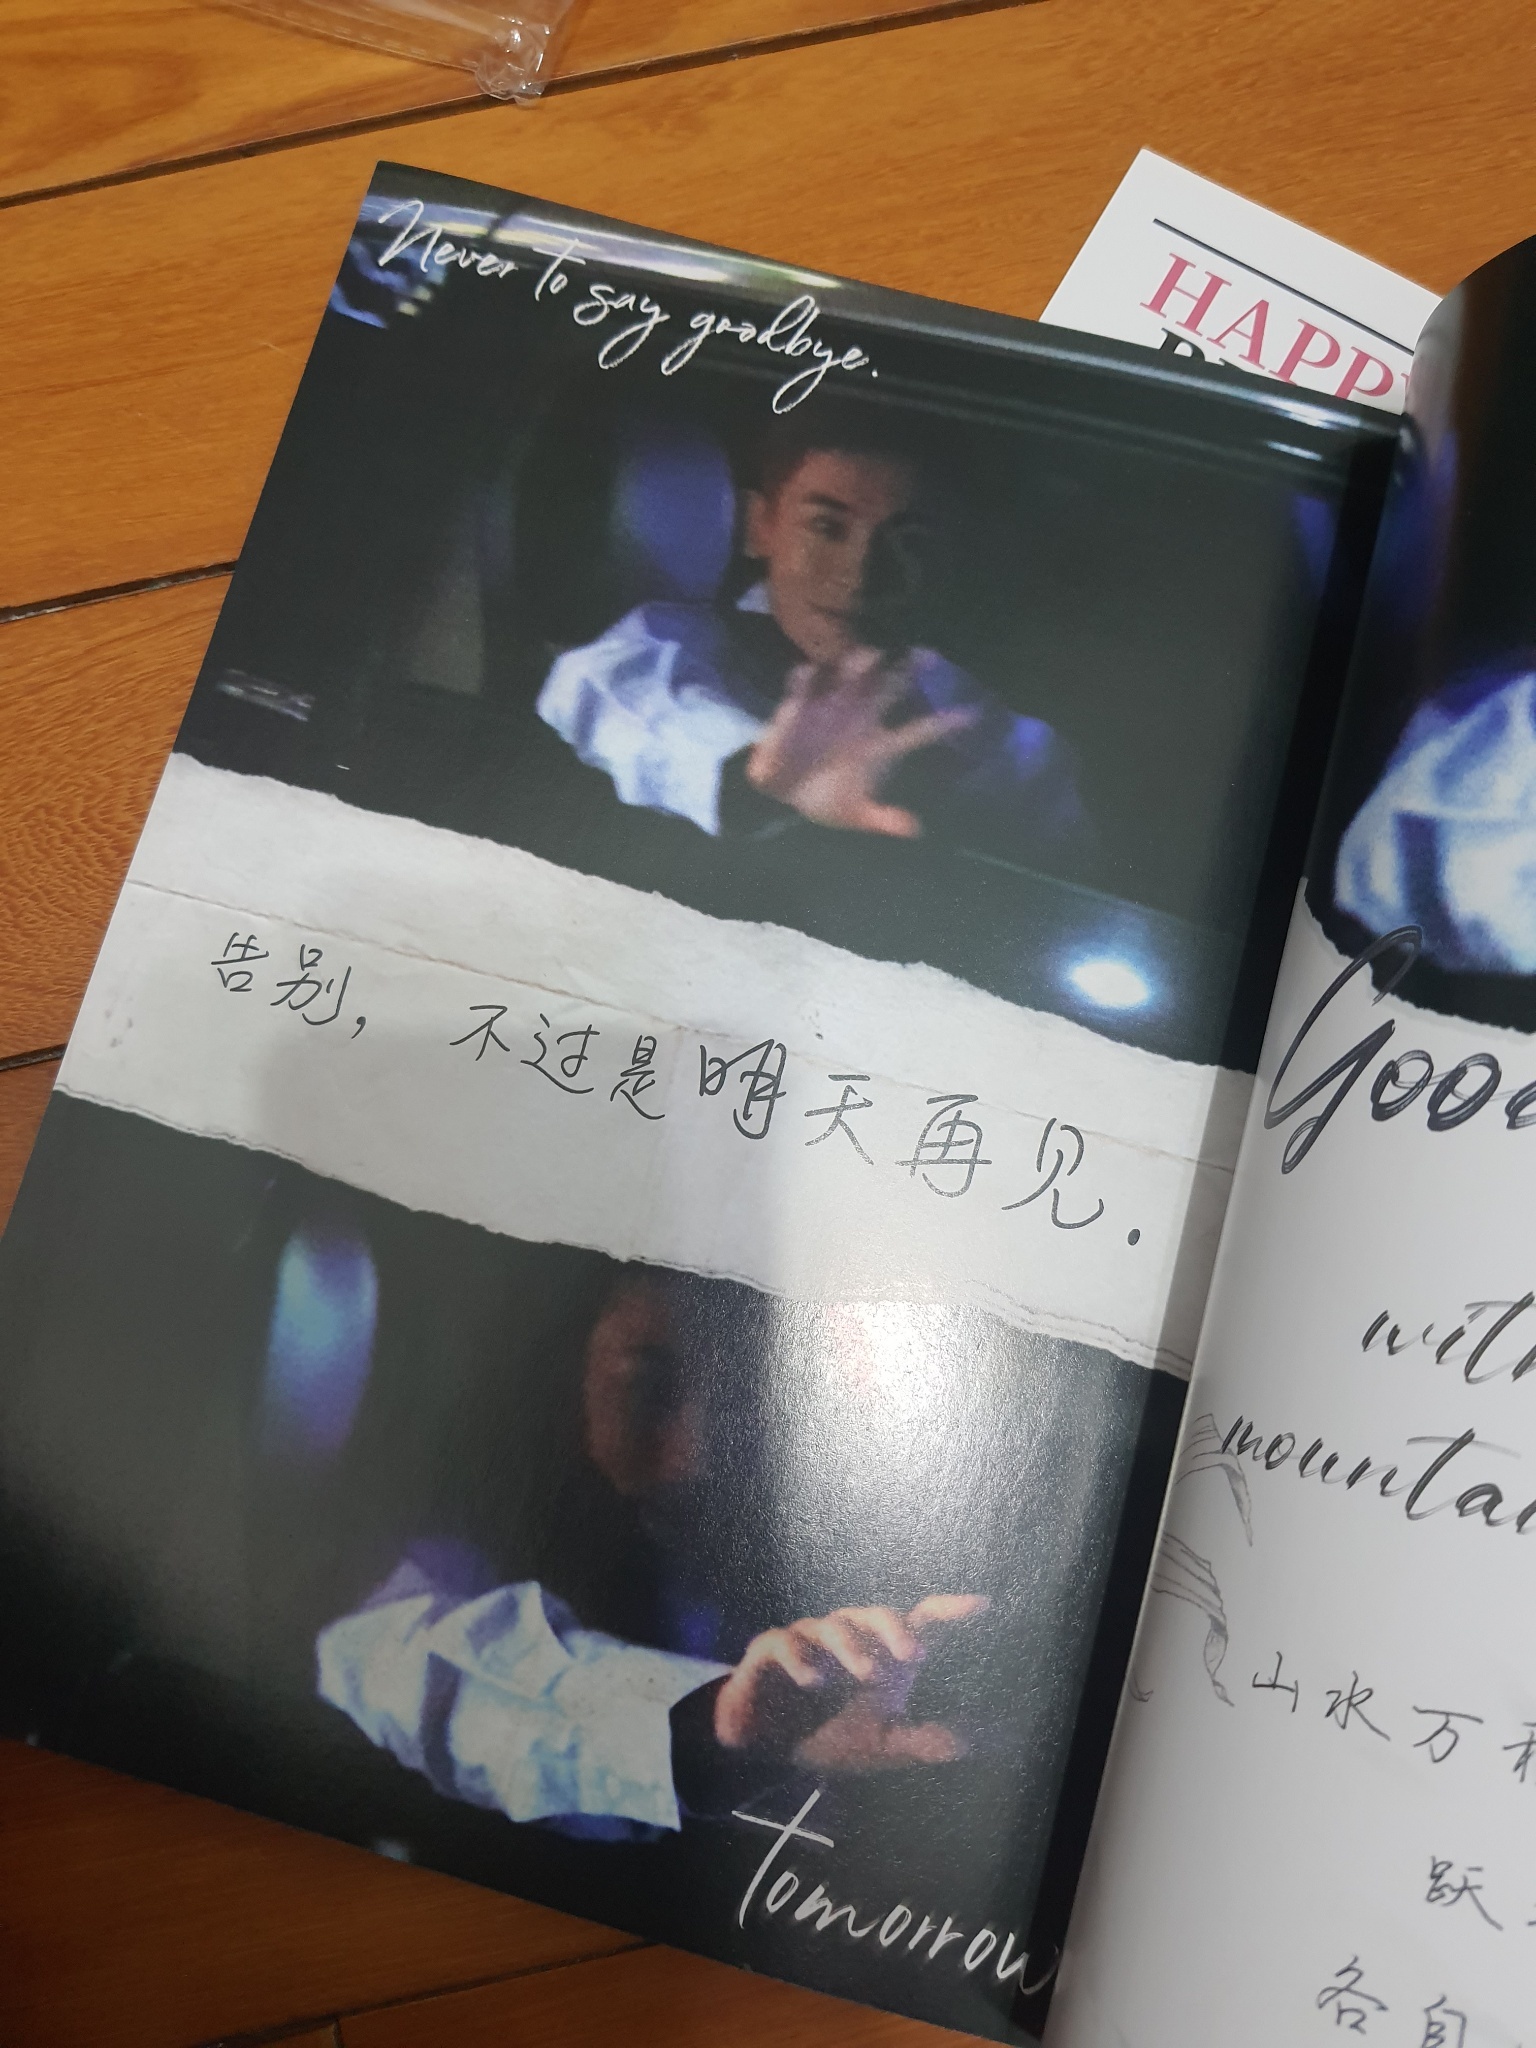 Never to say goodbye.
HAPPY
告别，不过是明天再见.
tomorrow
with
山水万
跃
各自